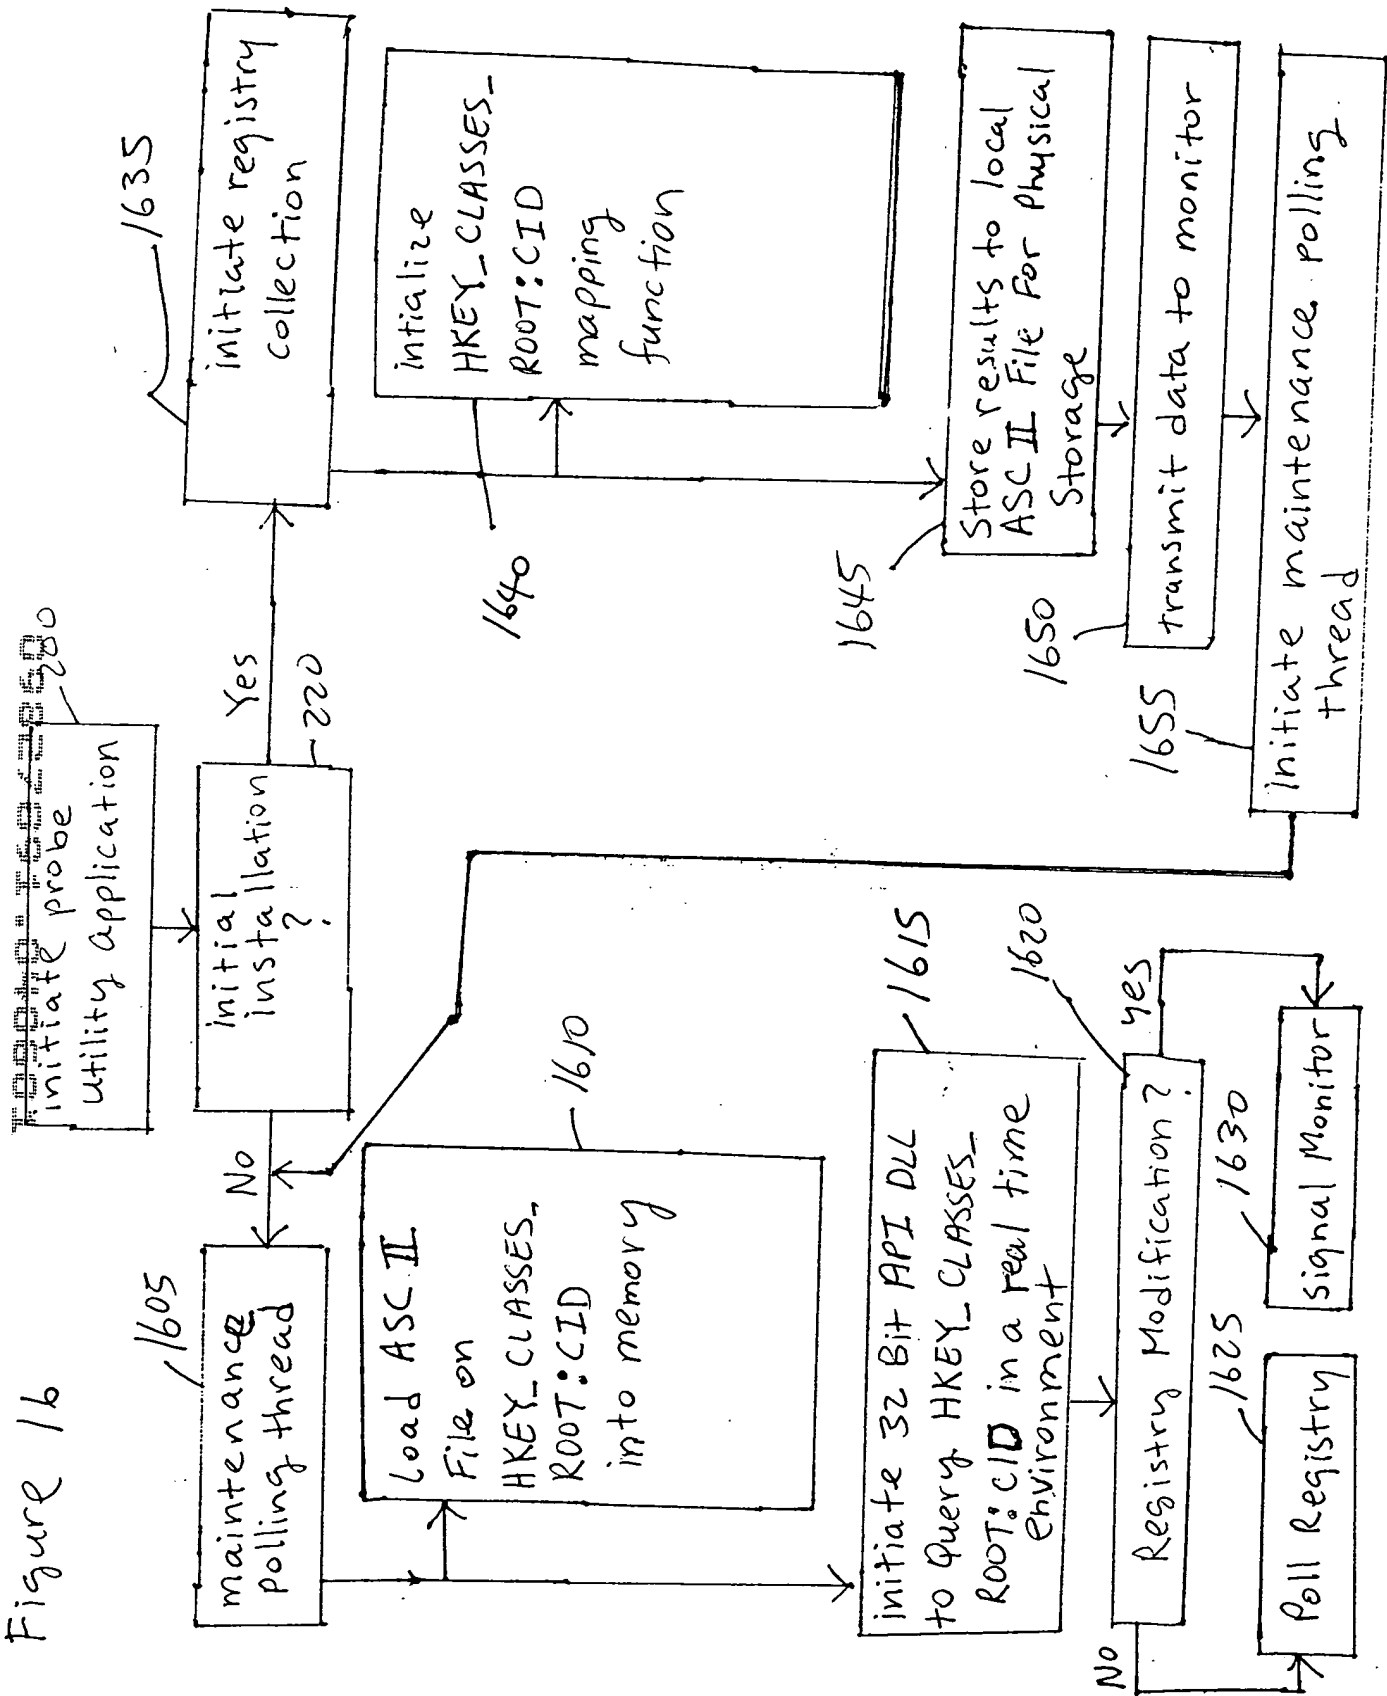 Figure 16
initiate probe
utility application
200
initial
installation
?
220
No
Yes
maintenance
polling thread
1605
Load ASC II
File on
HKEY_CLASSES_
ROOT:CID
into memory
1610
initiate 32 Bit API DLL
to Query HKEY_CLASSES_
ROOT:CID in a real time
environment
1615
Registry Modification?
1620
No
yes
Poll Registry
1625
Signal Monitor
1630
initiate registry
collection
1635
intialize
HKEY_CLASSES_
ROOT:CID
mapping
function
1640
Store results to local
ASC II File For Physical
Storage
1645
transmit data to monitor
1650
Initiate maintenance polling
thread
1655